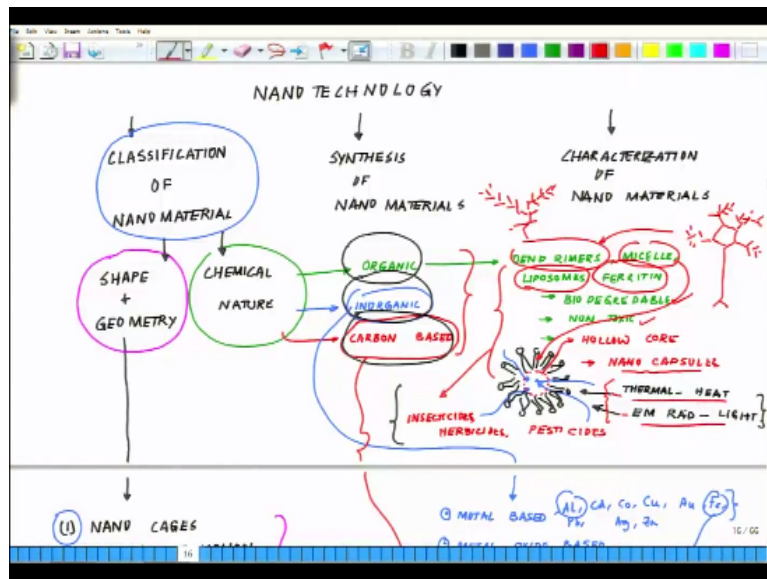 File Edit View Insert Actions Tools Help
B I
NANOTECHNOLOGY
CLASSIFICATION
OF
NANO MATERIAL
SYNTHESIS
OF
NANO MATERIALS
CHARACTERIZATION
OF
NANO MATERIALS
SHAPE
+
GEOMETRY
CHEMICAL
NATURE
ORGANIC
INORGANIC
CARBON BASED
DENDRIMERS MICELLE,
LIPOSOMES FERRITIN
BIO DEGREDABLE
NON TOXIC
HOLLOW CORE
NANO CAPSULES
THERMAL - HEAT
EM RAD - LIGHT
INSECTICIDES
HERBICIDES,
PESTICIDES
(1) NANO CAGES
METAL BASED Al, CA, Co, Cu, Au, Fe,
Pb, Ag, Zn
METAL OXIDE BASED
16
16/66